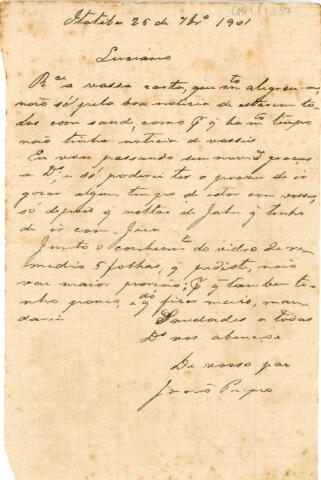 Itatiba 25 de 7brº 1901
Luciano
Rce a vossa carta, que mto alegrou-me,
não só pela boa noticia de estarem to-
dos com saude, como pq ha mto tempo
não tinha noticia de vossês
Eu vou passando sem novide graças
a Ds e só poderei ter o prazer de ir
gozar algum tempo de estar com vossês
só depois q voltar de Jahu q tenho
de ir com Juca
Junto o conhecimto do vidro de re-
medio 5 folhas, q pediste, não
vai maior porção pq tambem te-
nho pouco, e qdo fizer mais, man-
darei
Saudades a todos
Ds vos abençoe
De vosso pae
João